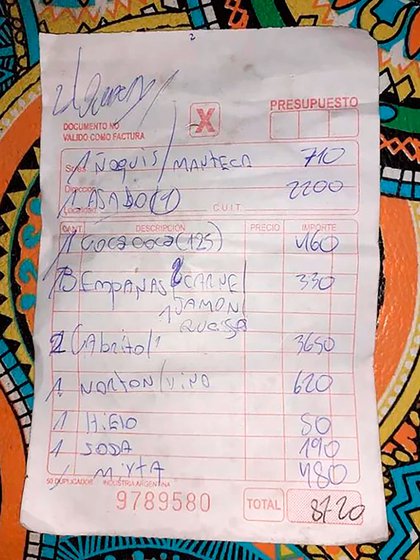 2
PRESUPUESTO
X
DOCUMENTO NO
VALIDO COMO FACTURA
1 ÑOQUIS/MANTECA 710
1 ASADO (1) 2200
CUIT.
CANT. DESCRIPCIÓN PRECIO IMPORTE
1 COCACOCA (125) 460
3 EMPANAS 2 CARNE/ 330
1 JAMON/
QUESO
2 CABRITO/1 3650
1 NORTON/VINO 620
1 HIELO 50
1 SODA 190
1 MIXTA 480
50 DUPLICADOR INDUSTRIA ARGENTINA
9789580
TOTAL 8720